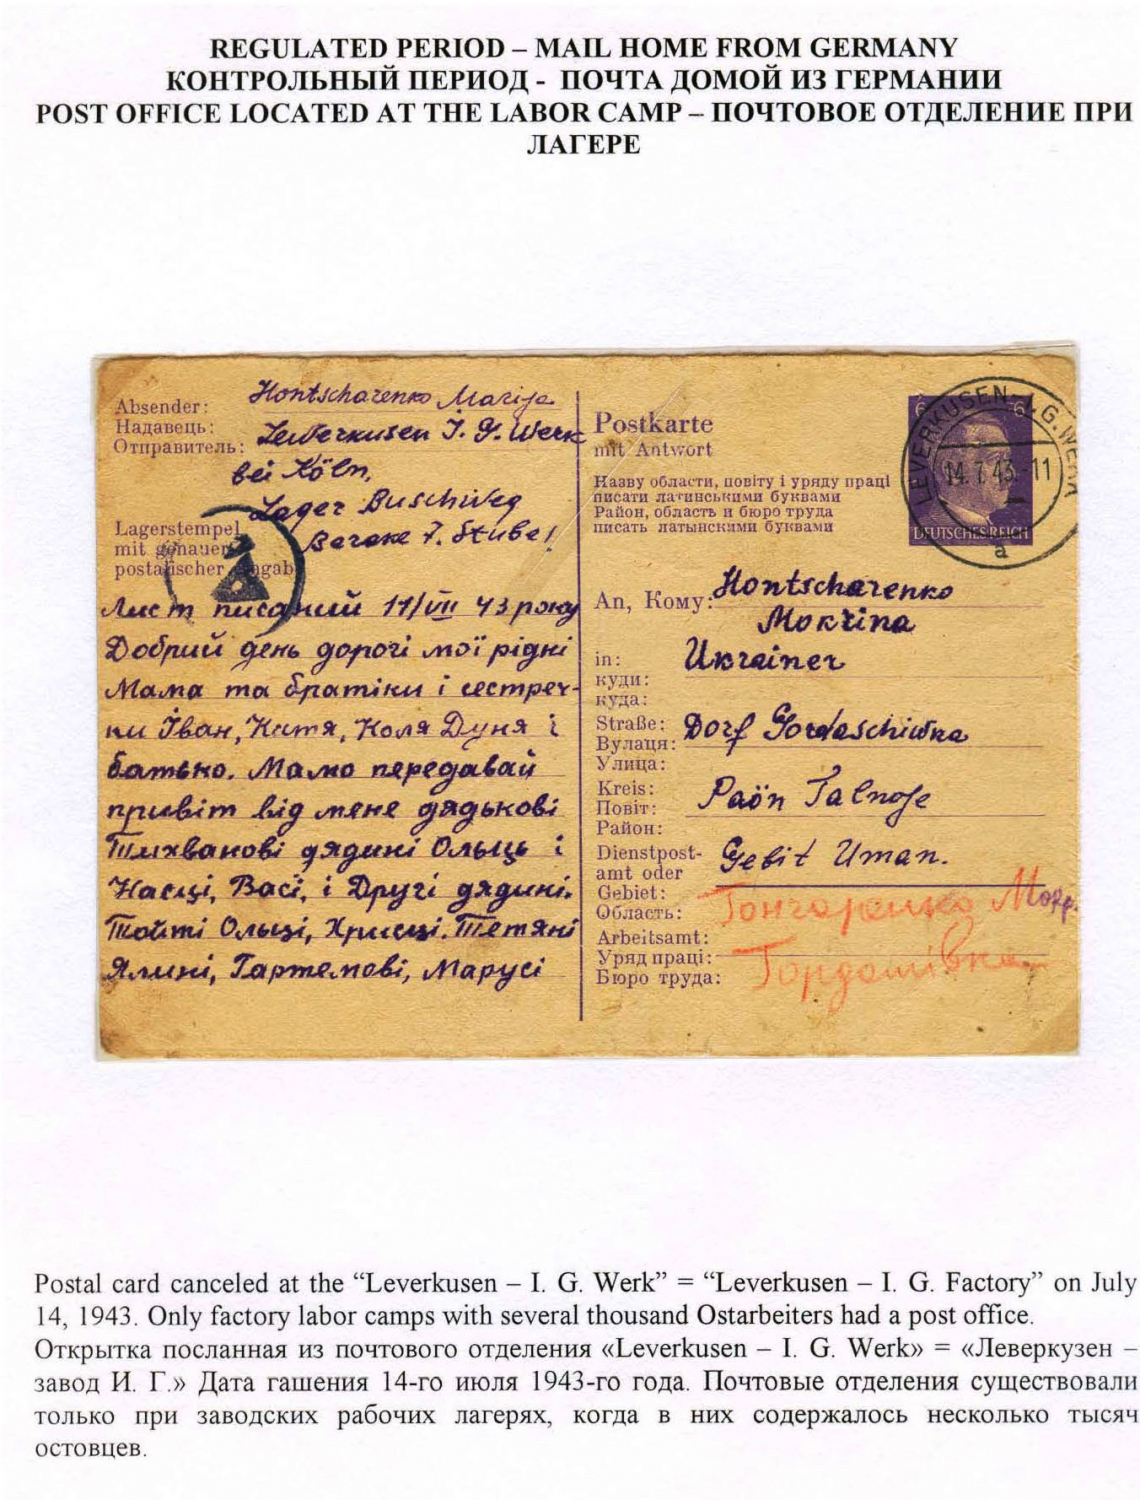 REGULATED PERIOD – MAIL HOME FROM GERMANY
КОНТРОЛЬНЫЙ ПЕРИОД - ПОЧТА ДОМОЙ ИЗ ГЕРМАНИИ
POST OFFICE LOCATED AT THE LABOR CAMP – ПОЧТОВОЕ ОТДЕЛЕНИЕ ПРИ
ЛАГЕРЕ
Absender: Hontscharenko Marija
Надавець:
Отправитель: Leverkusen I. G. Werk
bei Köln,
Lager Buschweg
Barake 7. Stube 1
Lagerstempel
mit genauer
postalischer Angabe
Лист писаний 11/VII 43 року
Добрий день дорогі мої рідні
Мама та братіки і сестреч-
ки Іван, Катя, Коля Дуня і
батько. Мамо передавай
привіт від мене дядькові
Тихванові дядині Ользь і
Насці, Васі, і Другі дядині.
Тойті Ользі, Хрисці, Тетяні
Ялині, Гартемові, Марусі
Postkarte
mit Antwort
Назву области, повіту і уряду праці
писати латинськими буквами
Район, область и бюро труда
писать латынскими буквами
6 6
DEUTSCHES REICH
LEVERKUSEN-I.G.WERK
14.7.43.-11
a
An, Кому: Hontscharenko
Mokrina
in: Ukrainer
куди:
куда:
Straße: Dorf Gordaschiwka
Вулаця:
Улица:
Kreis: Paön Talnoje
Повіт:
Район:
Dienstpost-
amt oder Gebit Uman.
Gebiet:
Область: Гончаренко Мокр.
Arbeitsamt:
Уряд праці: Гордашівка
Бюро труда:
Postal card canceled at the “Leverkusen – I. G. Werk” = “Leverkusen – I. G. Factory” on July
14, 1943. Only factory labor camps with several thousand Ostarbeiters had a post office.
Открытка посланная из почтового отделения «Leverkusen – I. G. Werk» = «Леверкузен –
завод И. Г.» Дата гашения 14-го июля 1943-го года. Почтовые отделения существовали
только при заводских рабочих лагерях, когда в них содержалось несколько тысяч
остовцев.